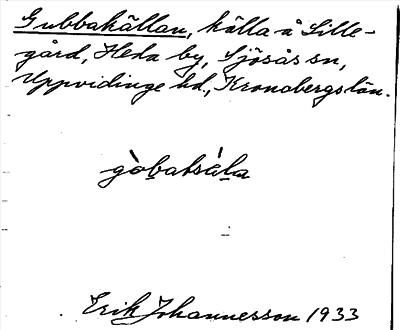 Gubbakällan, källa å Lille-
gård, Heda by, Sjösås sn,
Uppvidinge hd., Kronobergs län.
gòbatsǻla
Erik Johannesson 1933